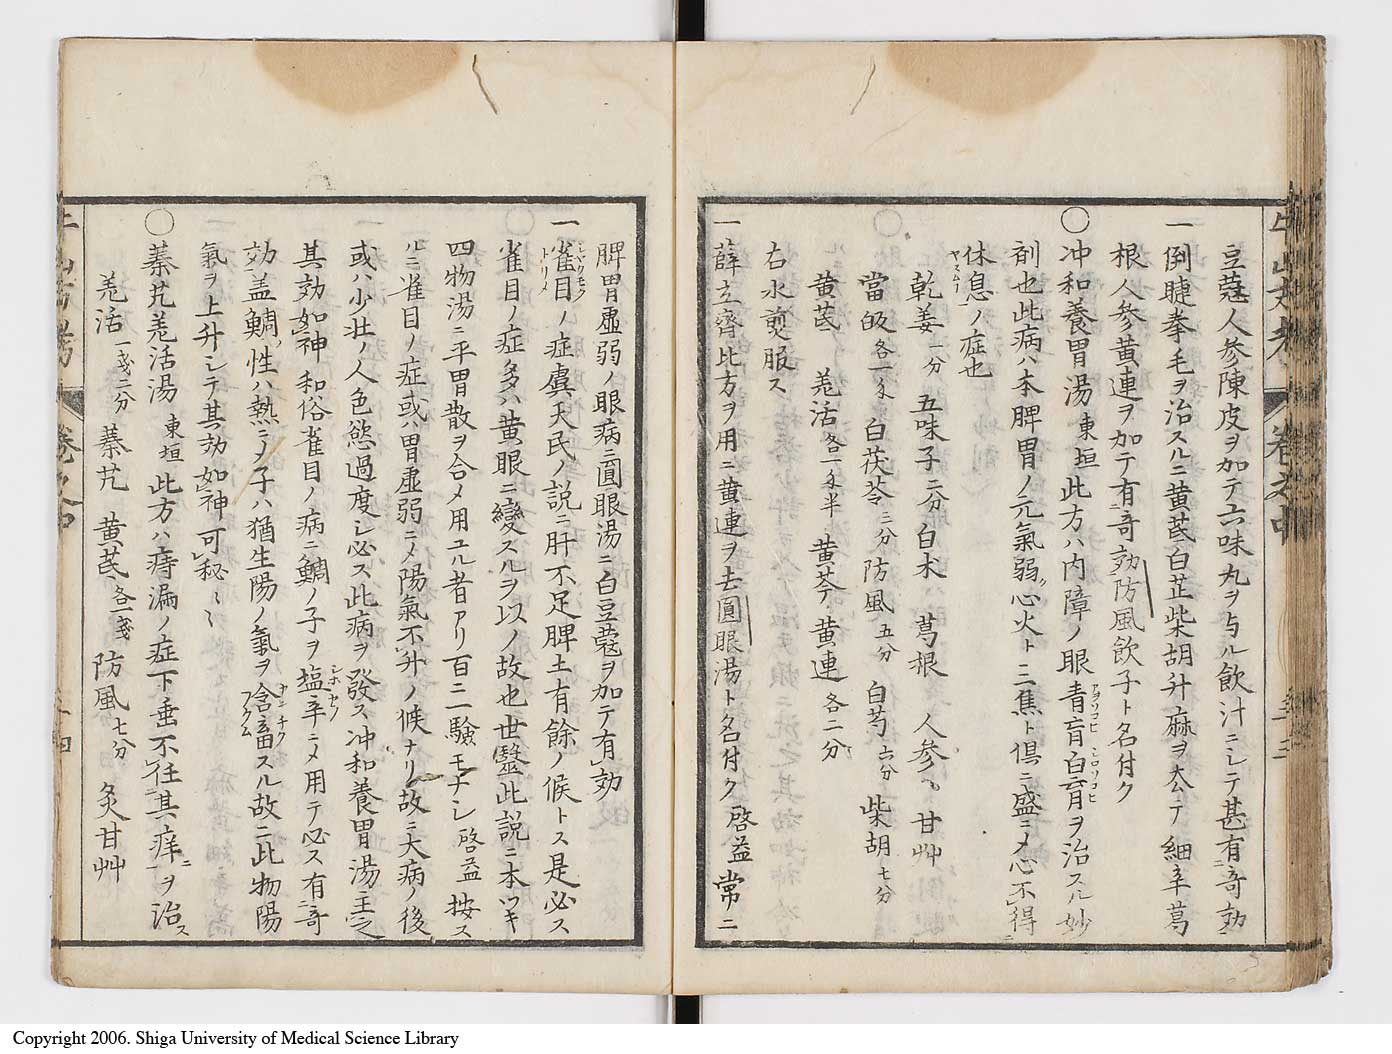 豆蔲人参陳皮ヲ加テ六味丸ヲ与ル飲汁ニシテ甚有奇効
一倒睫拳毛ヲ治スルニ黄芪白芷柴胡升麻ヲ去テ細辛葛
根人参黄連ヲ加テ有奇効防風飲子ト名付ク
〇冲和養胃湯東垣此方ハ内障ノ眼青盲白雲月ヲ治スル妙
剤也此病ハ本脾胃ノ元氣弱心火ト三焦ト倶ニ盛ニメ心不得
休息ノ症也
乾姜一分 五味子二分白木 葛根 人参 甘艸
當皈各一匁 白茯苓三分防風五分 白芍六分柴胡七分
黄芪 羌活各一匁半 黄芩 黄連各二分
右水煎服ス
一薛立齊此方ヲ用ニ黄連ヲ去圓眼湯ト名付ク啓益常ニ
脾胃虚弱ノ眼病ニ圓眼湯ニ白豆蔲ヲ加テ有効
一雀目ノ症虞天民ノ説ニ肝不足脾土有餘ノ候トス是必ス
雀目ノ症多ハ黄眼ニ變スルヲ以ノ故也世醫此説ニ本ツキ
四物湯ニ平胃散ヲ合メ用ユル者アリ百ニ一驗モナシ啓益按ス
ルニ雀目ノ症或ハ胃虚弱ニメ陽氣不升ノ候ナリ故ニ大病ノ後
或ハ少壮ノ人色慾過度シ必ス此病ヲ發ス冲和養胃湯主之
其効如神和俗雀目ノ病ニ鯛ノ子ヲ塩辛ニメ用テ必ス有奇
効盖鯛性ハ熱ニノ子ハ猶生陽ノ氣ヲ含畜スル故ニ此物陽
氣ヲ上升シテ其効如神可秘〻
〇蓁艽羌活湯東垣此方ハ痔漏ノ症下垂不任其痒ヲ治ス
羌活一戔二分 蓁艽 黄芪各一戔 防風七分 炙甘艸
Copyright 2006. Shiga University of Medical Science Library